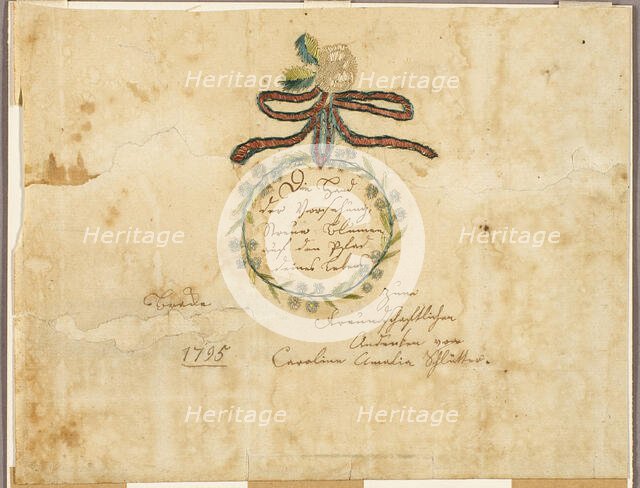 Die Hand
der Vorsehung
Streue Blumen
auf den Pfad
deines Lebens
Brede
1795
Zum
Freundschaftlichen
Andenken von
Caroline Amalia Schlütter.
Heritage
Heritage
Heritage
Heritage
Heritage
Heritage
Heritage
Heritage